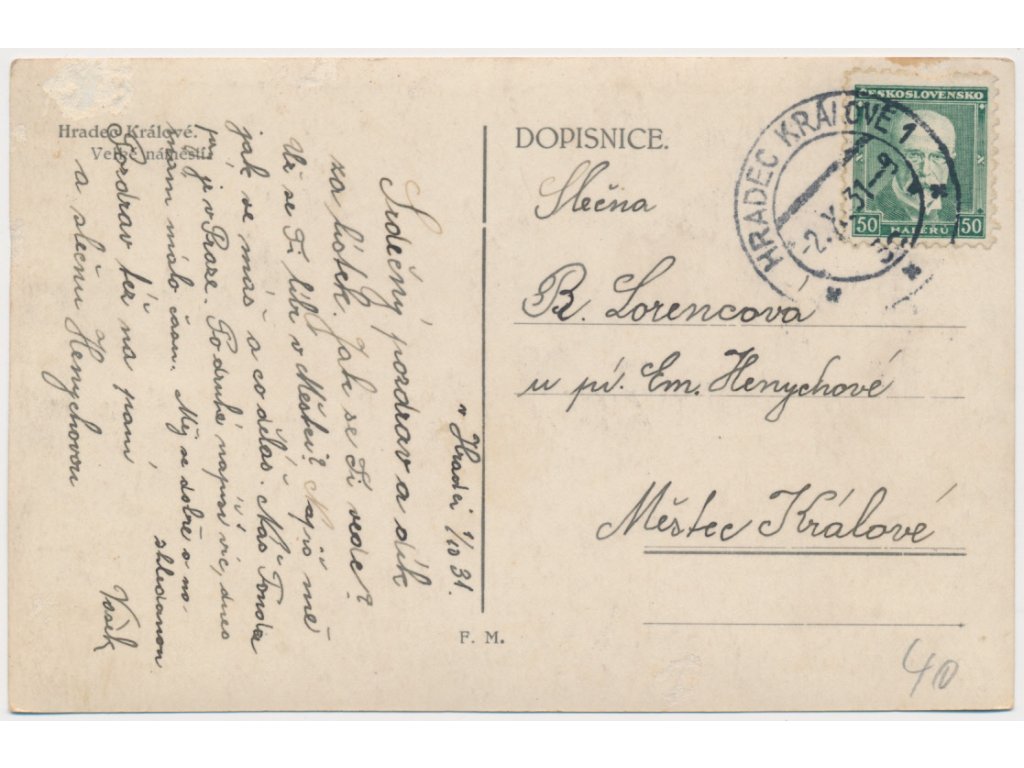 Hradec Králové.
Velké náměstí.
v Hradci 1/10 31.
Srdečný pozdrav a dík
za lístek. Jak se Ti vede?
Už se Ti líbí v Městci? Napiš mě
jak ve máš a co děláš. Náš Tonda
je v Praze. Po druhé napíši víc, dnes
mám málo času. Měj se dobře a na
shledanou
Pozdrav též na paní
a slečnu Henychovou
Vašek
DOPISNICE.
Slečna
B. Lorencova
u pí. Em. Henychové
Městec Králové
F. M.
ČESKOSLOVENSKO
50 HALÉŘŮ 50
HRADEC KRÁLOVÉ 1
-2.X.31
40